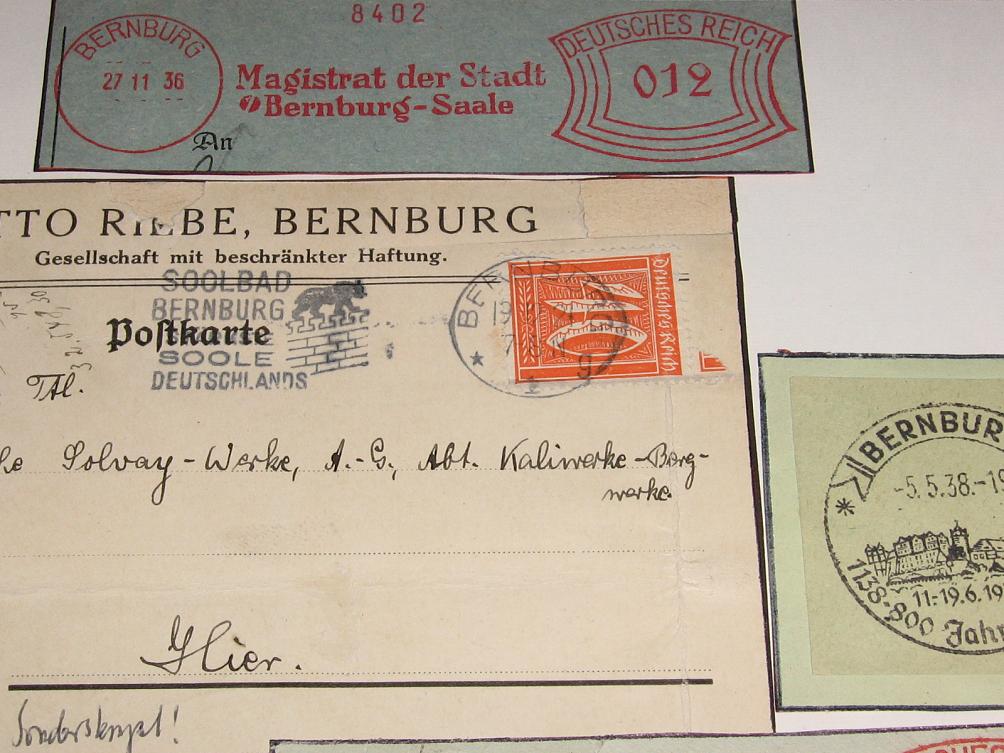 8402
BERNBURG
27 11 36
Magistrat der Stadt
Bernburg-Saale
DEUTSCHES REICH
012
An
TTO RIEBE, BERNBURG
Gesellschaft mit beschränkter Haftung.
SOOLBAD
BERNBURG
SOOLE
DEUTSCHLANDS
Postkarte
BERNBURG
Deutsches Reich
40
Tll.
he Solvay-Werke, A.-G., Abt. Kaliwerke-Berg-
werke.
Hier.
Sonderstempel!
BERNBUR
-5.5.38.-19
11.-19.6.19
1138-800 Jahr